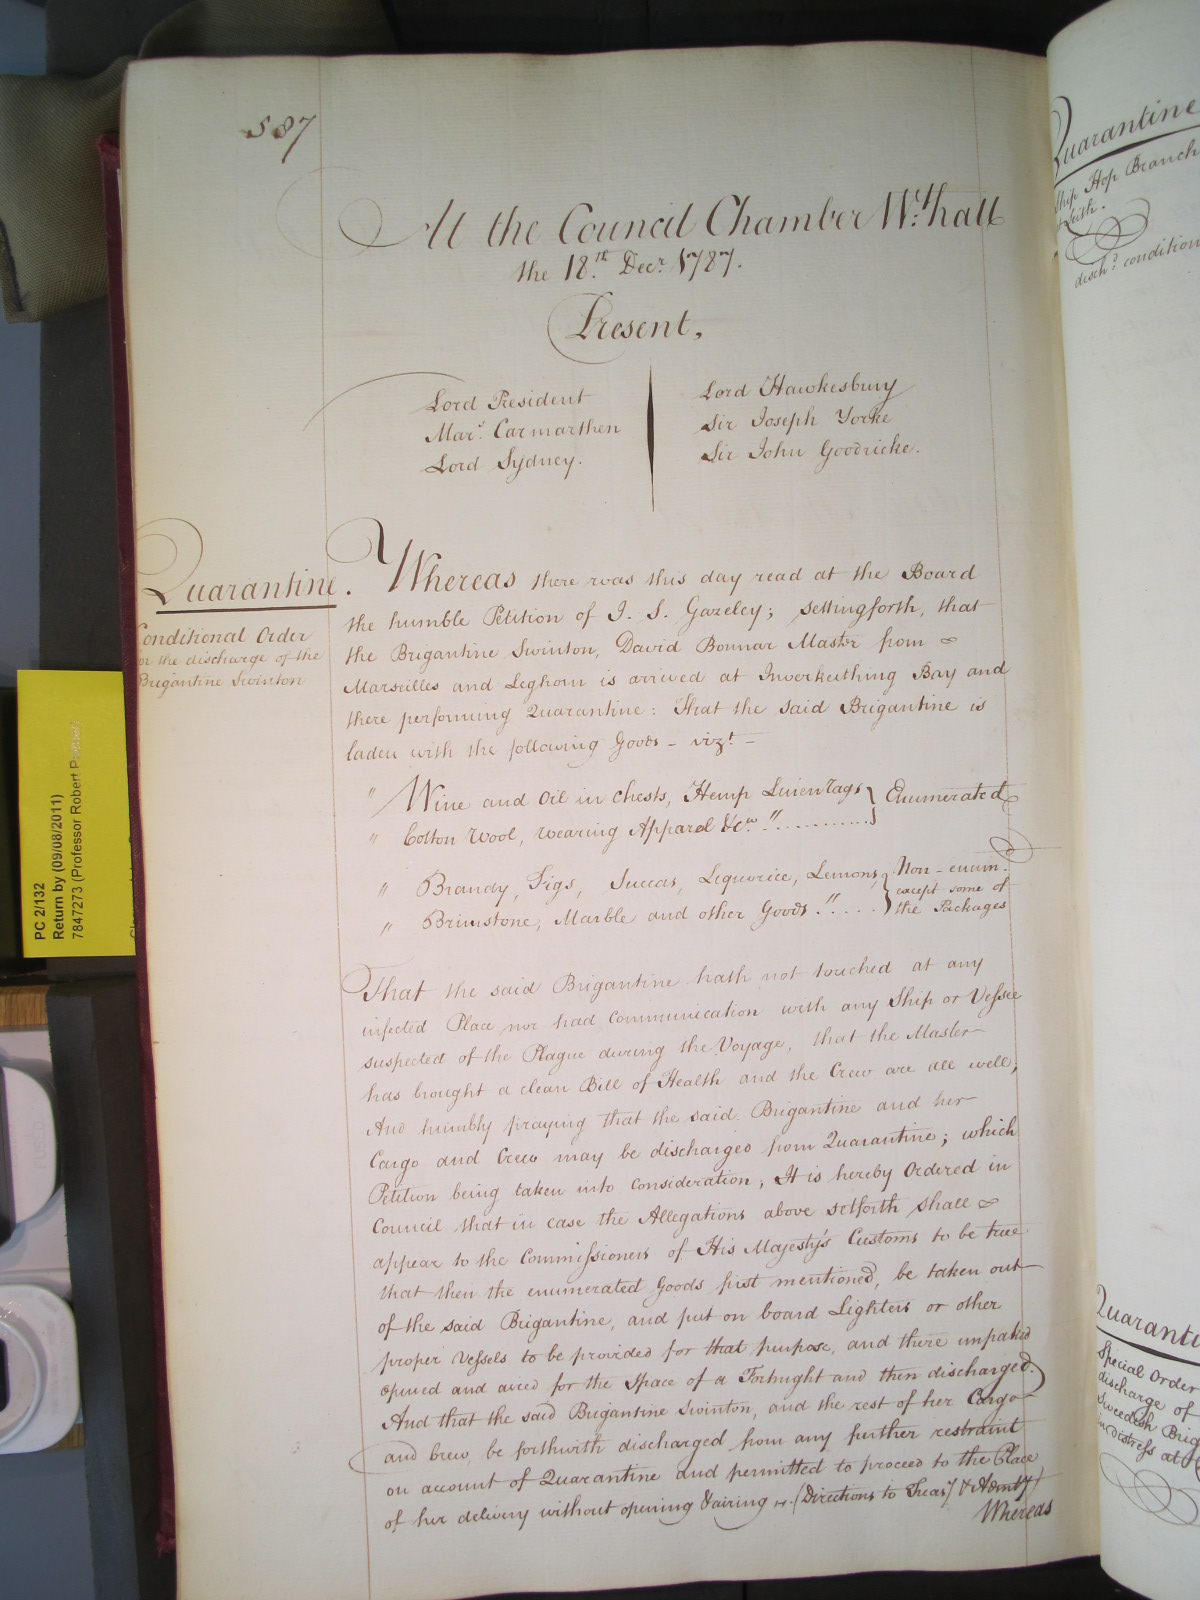 587
At the Council Chamber W.thall
the 18.th Decr. 1787.
Present,
Lord President
Mars. Carmarthen
Lord Sydney.
Lord Hawkesbury
Sir Joseph Yorke
Sir John Goodricke.
Quarantine.
Conditional Order
or the discharge of the
Brigantine Swinton
Whereas there was this day read at the Board
the humble Petition of J. S. Gazeley; settingforth, that
the Brigantine Swinton, David Bonnar Master from
Marseilles and Leghorn is arrived at Inverkeithing Bay and
there performing Quarantine: That the said Brigantine is
laden with the following Goods - vizt. -
" Wine and Oil in Chests, Hemp Linen Rags } Enumerated
" Cotton Wool, wearing Apparel &ca. "............}
" Brandy, Figs, Succas, Liquorice, Lemons, } Non-enum.
except some of
" Brimstone, Marble and other Goods." ..... } the Packages
That the said Brigantine hath not touched at any
infected Place nor had Communication with any Ship or Vessel
suspected of the Plague during the Voyage, that the Master
has brought a clean Bill of Health and the Crew are all well;
And humbly praying that the said Brigantine and her
Cargo and Crew may be discharged from Quarantine; which
Petition being taken into Consideration; It is hereby Ordered in
Council that in case the Allegations above setforth shall
appear to the Commissioners of His Majesty's Customs to be true
that then the enumerated Goods first mentioned, be taken out
of the said Brigantine, and put on board Lighters or other
proper Vessels to be provided for that purpose, and there unpaked
opened and aired for the Space of a Fortnight and then discharged.
And that the said Brigantine Swinton, and the rest of her Cargo
and Crew, be forthwith discharged from any further restraint
on account of Quarantine and permitted to proceed to the Place
of her delivery without opening & airing -.- (Directions to Treasy. & Admty.)
Whereas
PC 2/132
Return by (09/08/2011)
7847273 (Professor Robert
Quarantine
Ship Hop Branch
Leith.
disch.d condition
Quaranti
Special Order
discharge of
Swedish Brig
in distress at